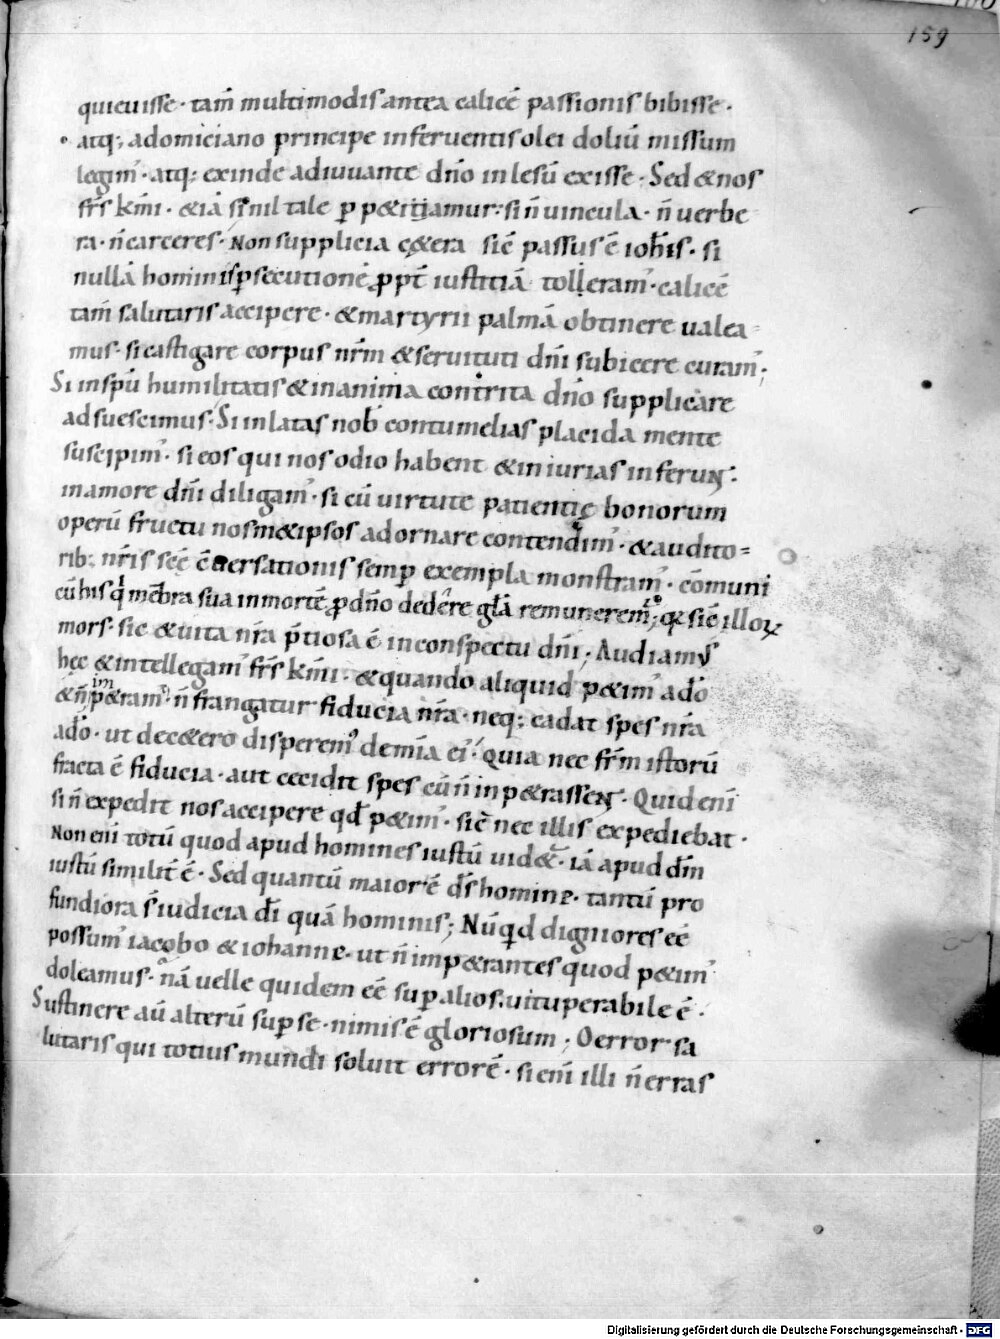 159
quieuisse · tam̅ multimodis antea calicē passionis bibisse ·
· atq; adomiciano principe inferuentis olei doliū missum
legim᾽ · atq; exinde adiuuante dn̅o inlesū exisse · Sed & nos
fr̅s km̅i · & iā simil tale p p&iamur: si n̅ uincula · n̅ uerbe
ra · n̅ carceres · Non supplicia c&era sic̅ passus ē ioh̅is · si
nullā hominis p̱secutionē ꝓpt̅ iustitiā tolleram᾽ · calicē
tam̅ salutaris accipere · & martyrii palmā obtinere ualea-
mus · si castigare corpus nr̅m & seruituti dn̅i subicere curam᾽;
Si in sp̅u humilitatis & in anima contrita dn̅o supplicare
adsuescimus · Si inlatas nob̅ contumelias placida mente
suscipim᾽ · si eos qui nos odio habent & iniurias inferuɴt:
in amore dn̅i diligam᾽ · si cū uirtute patientię bonorum
operū fructu nosm&ipsos adornare contendim᾽ · & audito=
rib; nr̅is sc̅e c̅uersationis semp̱ exempla monstram᾽ · cōmuni
cū his q̍ mēbra sua in mortē ꝓ dn̅o dedere gl̅a remunerem᾽; q̍ sic̅ illoꝝ
mors · sic & uita nr̅a p̅tiosa ē in conspectu dn̅i; Audiam᾽
hec & intellegam᾽ fr̅s km̅i · & quando aliquid p&im᾽ a dō
& n̅ im p&ram᾽ · n̅ frangatur fiducia nr̅a · neq; cadat spes nr̅a
a dō · ut dec&ero disperem᾽ de mīa ei᾽ · Quia nec fr̅m istorū
fracta ē fiducia · aut cecidit spes cū n̅ inp&rasseɴt · Quid eni̅
si n̅ expedit nos accipere qd̅ p&im᾽ · sic̅ nec illis expediebat ·
Non eni̅ totū quod apud homines iustū uid& · iā apud dm̅
iustū similit̅ ē · Sed quantū maior ē ds̅ homine · tantū pro
fundiora s̅ iudicia di̅ quā hominis; Nūq̍d digniores eē
possum᾽ iacobo & iohanne · ut n̅ imp&rantes quod p&im᾽
doleamus · nā uelle quidem eē sup̱ alios · uituperabile ē ·
Sustinere aū alterū sup̱ se · nimis ē gloriosum; O error sa
lutaris qui totius mundi soluit errorē · si eni̅ illi n̅ erras
Digitalisierung gefördert durch die Deutsche Forschungsgemeinschaft - DFG